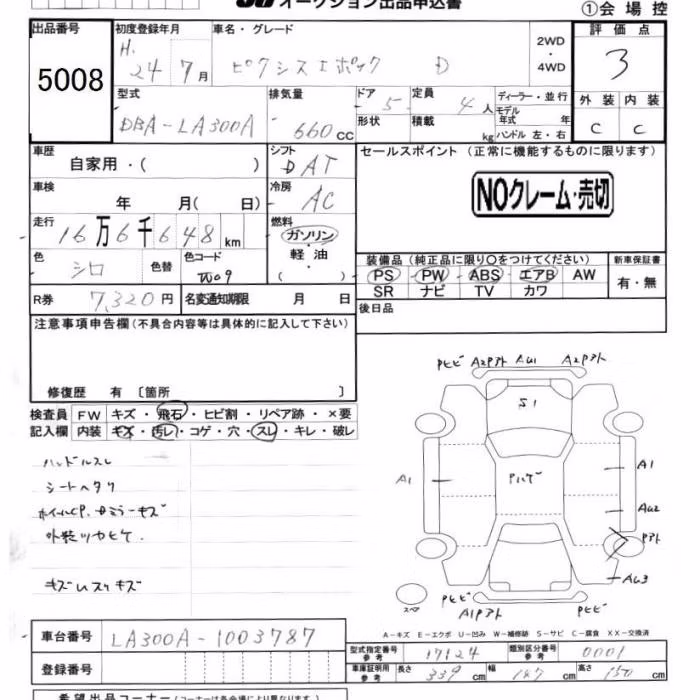 オークション出品申込書
①会場控
出品番号 5008
初度登録年月 H. 24年7月
車名・グレード ピクシスエポック D
2WD・4WD
評価点 3
型式 DBA-LA300A
排気量 660cc
ドア 5 形状
定員 4人 積載 kg
ディーラー・並行
モデル年式 年
ハンドル 左・右
外装 C 内装 C
車歴 自家用・( )
シフト DAT
セールスポイント (正常に機能するものに限ります)
車検 年 月( 日)
冷房 AC
NOクレーム・売切
走行 16万6千648km
燃料 ガソリン・軽油 ( )
色 シロ 色替
色コード W09
装備品 (純正品に限り〇をつけてください)
PS PW ABS エアB AW
SR ナビ TV カワ
新車保証書 有・無
R券 7,320円
名変通知期限 月 日
後日品
注意事項申告欄 (不具合内容等は具体的に記入して下さい)
修復歴 有 〔箇所 〕
検査員記入欄
FW キズ・飛石・ヒビ割・リペア跡・×要
内装 キズ・汚レ・コゲ・穴・スレ・キレ・破レ
ハンドルスレ
シートヘタリ
外装ツヤヒケ.
Pヒビ A2Pアト AU1 A2Pアト
S1
A1 Pハゲ A1
AU2
Pアト
AU3
スペア
Pヒビ A1Pアト Pヒビ
A-キズ E-エクボ U-凹み W-補修跡 S-サビ C-腐食 XX-交換済
車台番号 LA300A-1003787
型式指定番号 参考 17124 類別区分番号 参考 0001
登録番号
車庫証明用 参考 長さ 339cm 幅 147cm 高さ 150cm
希望出品コーナー